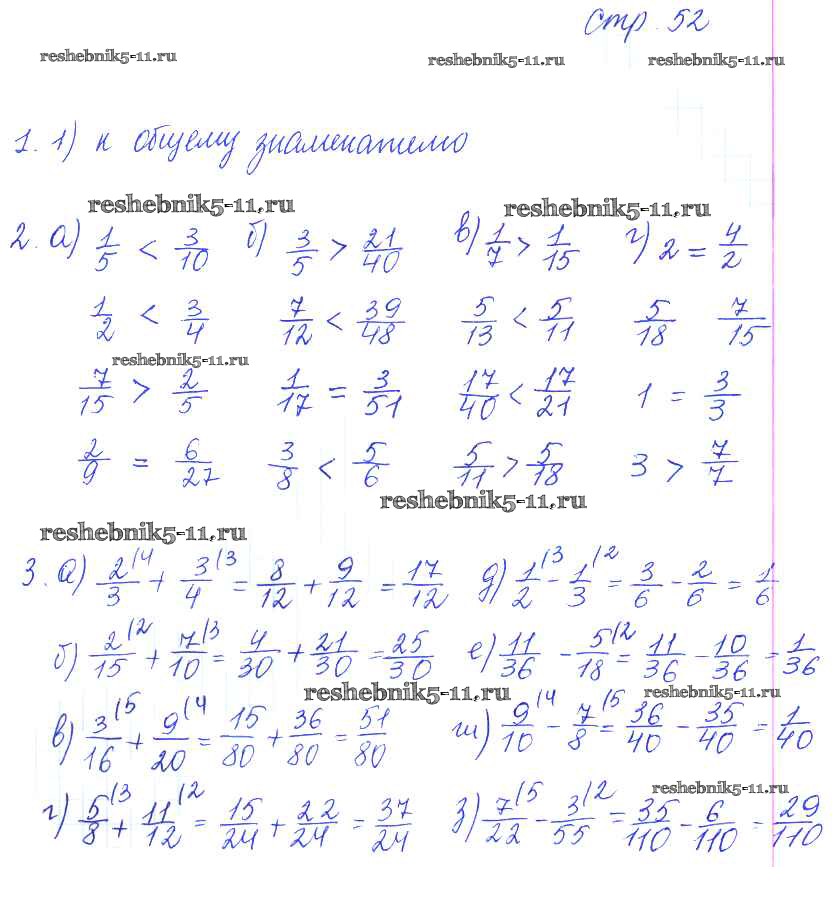 стр. 52
reshebnik5-11.ru reshebnik5-11.ru reshebnik5-11.ru
1. 1) к общему знаменателю
reshebnik5-11.ru reshebnik5-11.ru
2. а) 1/5 < 3/10 б) 3/5 > 21/40 в) 1/7 > 1/15 г) 2 = 4/2
1/2 < 3/4 7/12 < 39/48 5/13 < 5/11 5/18 7/15
reshebnik5-11.ru
7/15 > 2/5 1/17 = 3/51 17/40 < 17/21 1 = 3/3
2/9 = 6/27 3/8 < 5/6 5/11 > 5/18 3 > 7/7
reshebnik5-11.ru
reshebnik5-11.ru
3. а) 2/3 (4 + 3/4 (3 = 8/12 + 9/12 = 17/12 д) 1/2 (3 - 1/3 (2 = 3/6 - 2/6 = 1/6
б) 2/15 (2 + 7/10 (3 = 4/30 + 21/30 = 25/30 е) 11/36 - 5/18 (2 = 11/36 - 10/36 = 1/36
reshebnik5-11.ru reshebnik5-11.ru
в) 3/16 (5 + 9/20 (4 = 15/80 + 36/80 = 51/80 ж) 9/10 (4 - 7/8 (5 = 36/40 - 35/40 = 1/40
reshebnik5-11.ru
г) 5/8 (3 + 11/12 (2 = 15/24 + 22/24 = 37/24 з) 7/22 (5 - 3/55 (2 = 35/110 - 6/110 = 29/110